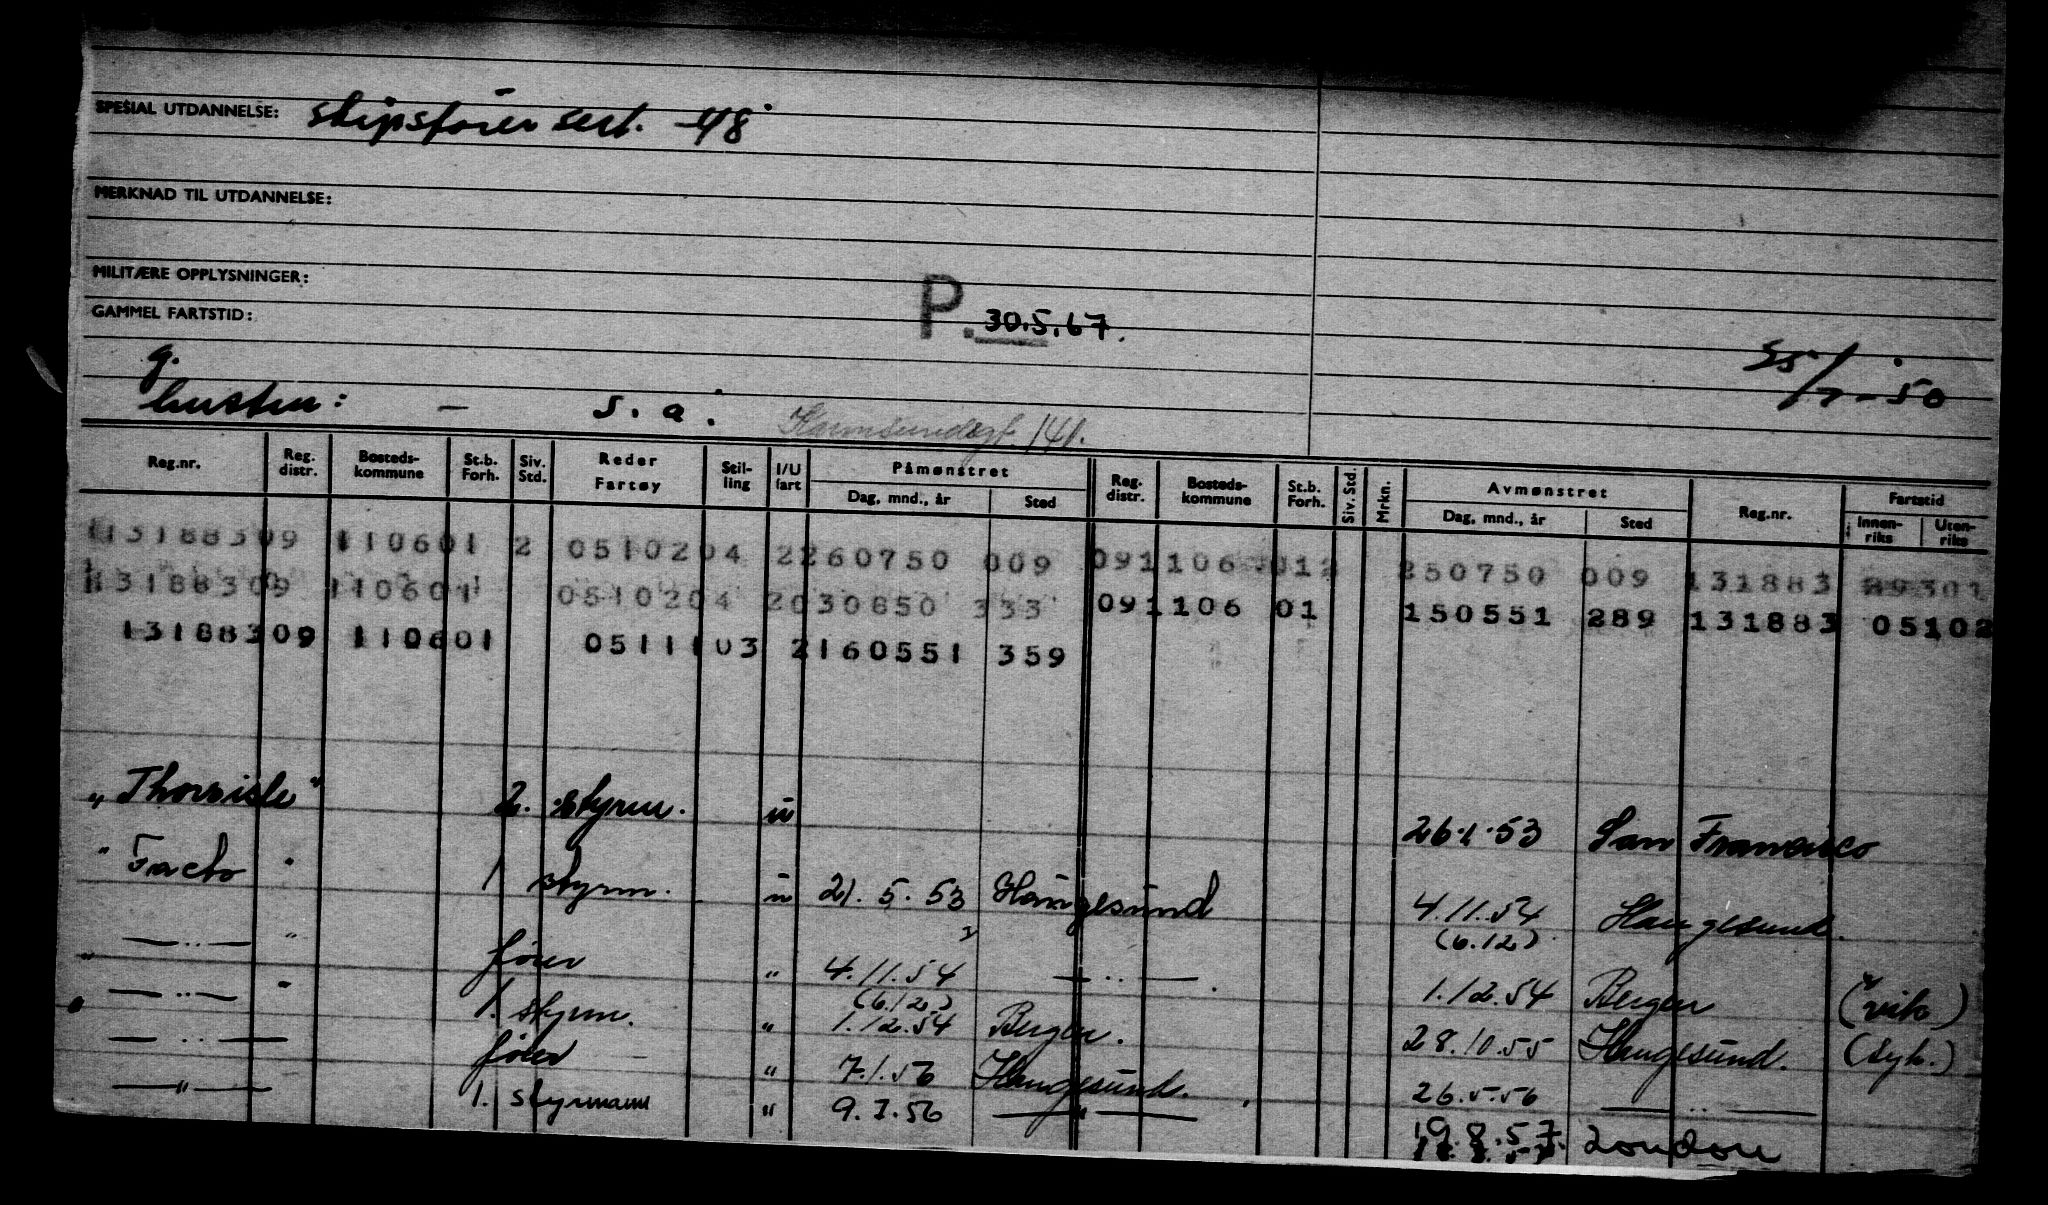 SPESIAL UTDANNELSE: skipsfører sert. -48
MERKNAD TIL UTDANNELSE:
MILITÆRE OPPLYSNINGER:
GAMMEL FARTSTID:
P. 30.5.67.
g.
hustru: — s. a. 141. -50
Reg.nr. Reg. distr. Bosteds-kommune St.b. Forh. Siv. Std. Reder Fartøy Stil-ling I/U fart Påmønstret Dag, mnd., år Sted Reg. distr. Bosteds-kommune St.b. Forh. Siv. Std. Mrkn. Avmønstret Dag, mnd., år Sted Reg.nr. Fartstid Innen-riks Uten-riks
13188309 110601 2 0510204 2260750 009 091106 012 250750 009 131883
13188309 110601 0510204 2030850 333 091106 01 150551 289 131883 05102
13188309 110601 0511103 2160551 359
"Thorsisle" 2. styrm. u 26.1.53 San Francisco
"Facto" 1 styrm. u 21.5.53 Haugesund 4.11.54 (6.12) Haugesund.
" — .. — " fører " 4.11.54 (6.12.) — .. — 1.12.54 Bergen (vik)
— .. — " 1. styrm. " 1.12.54 Bergen. 28.10.55 Haugesund. (syk.)
— .. — fører " 7.1.56 Haugesund. 26.5.56 — .. —
— " — 1. styrmann " 9.7.56 — " — 19.8.57. London